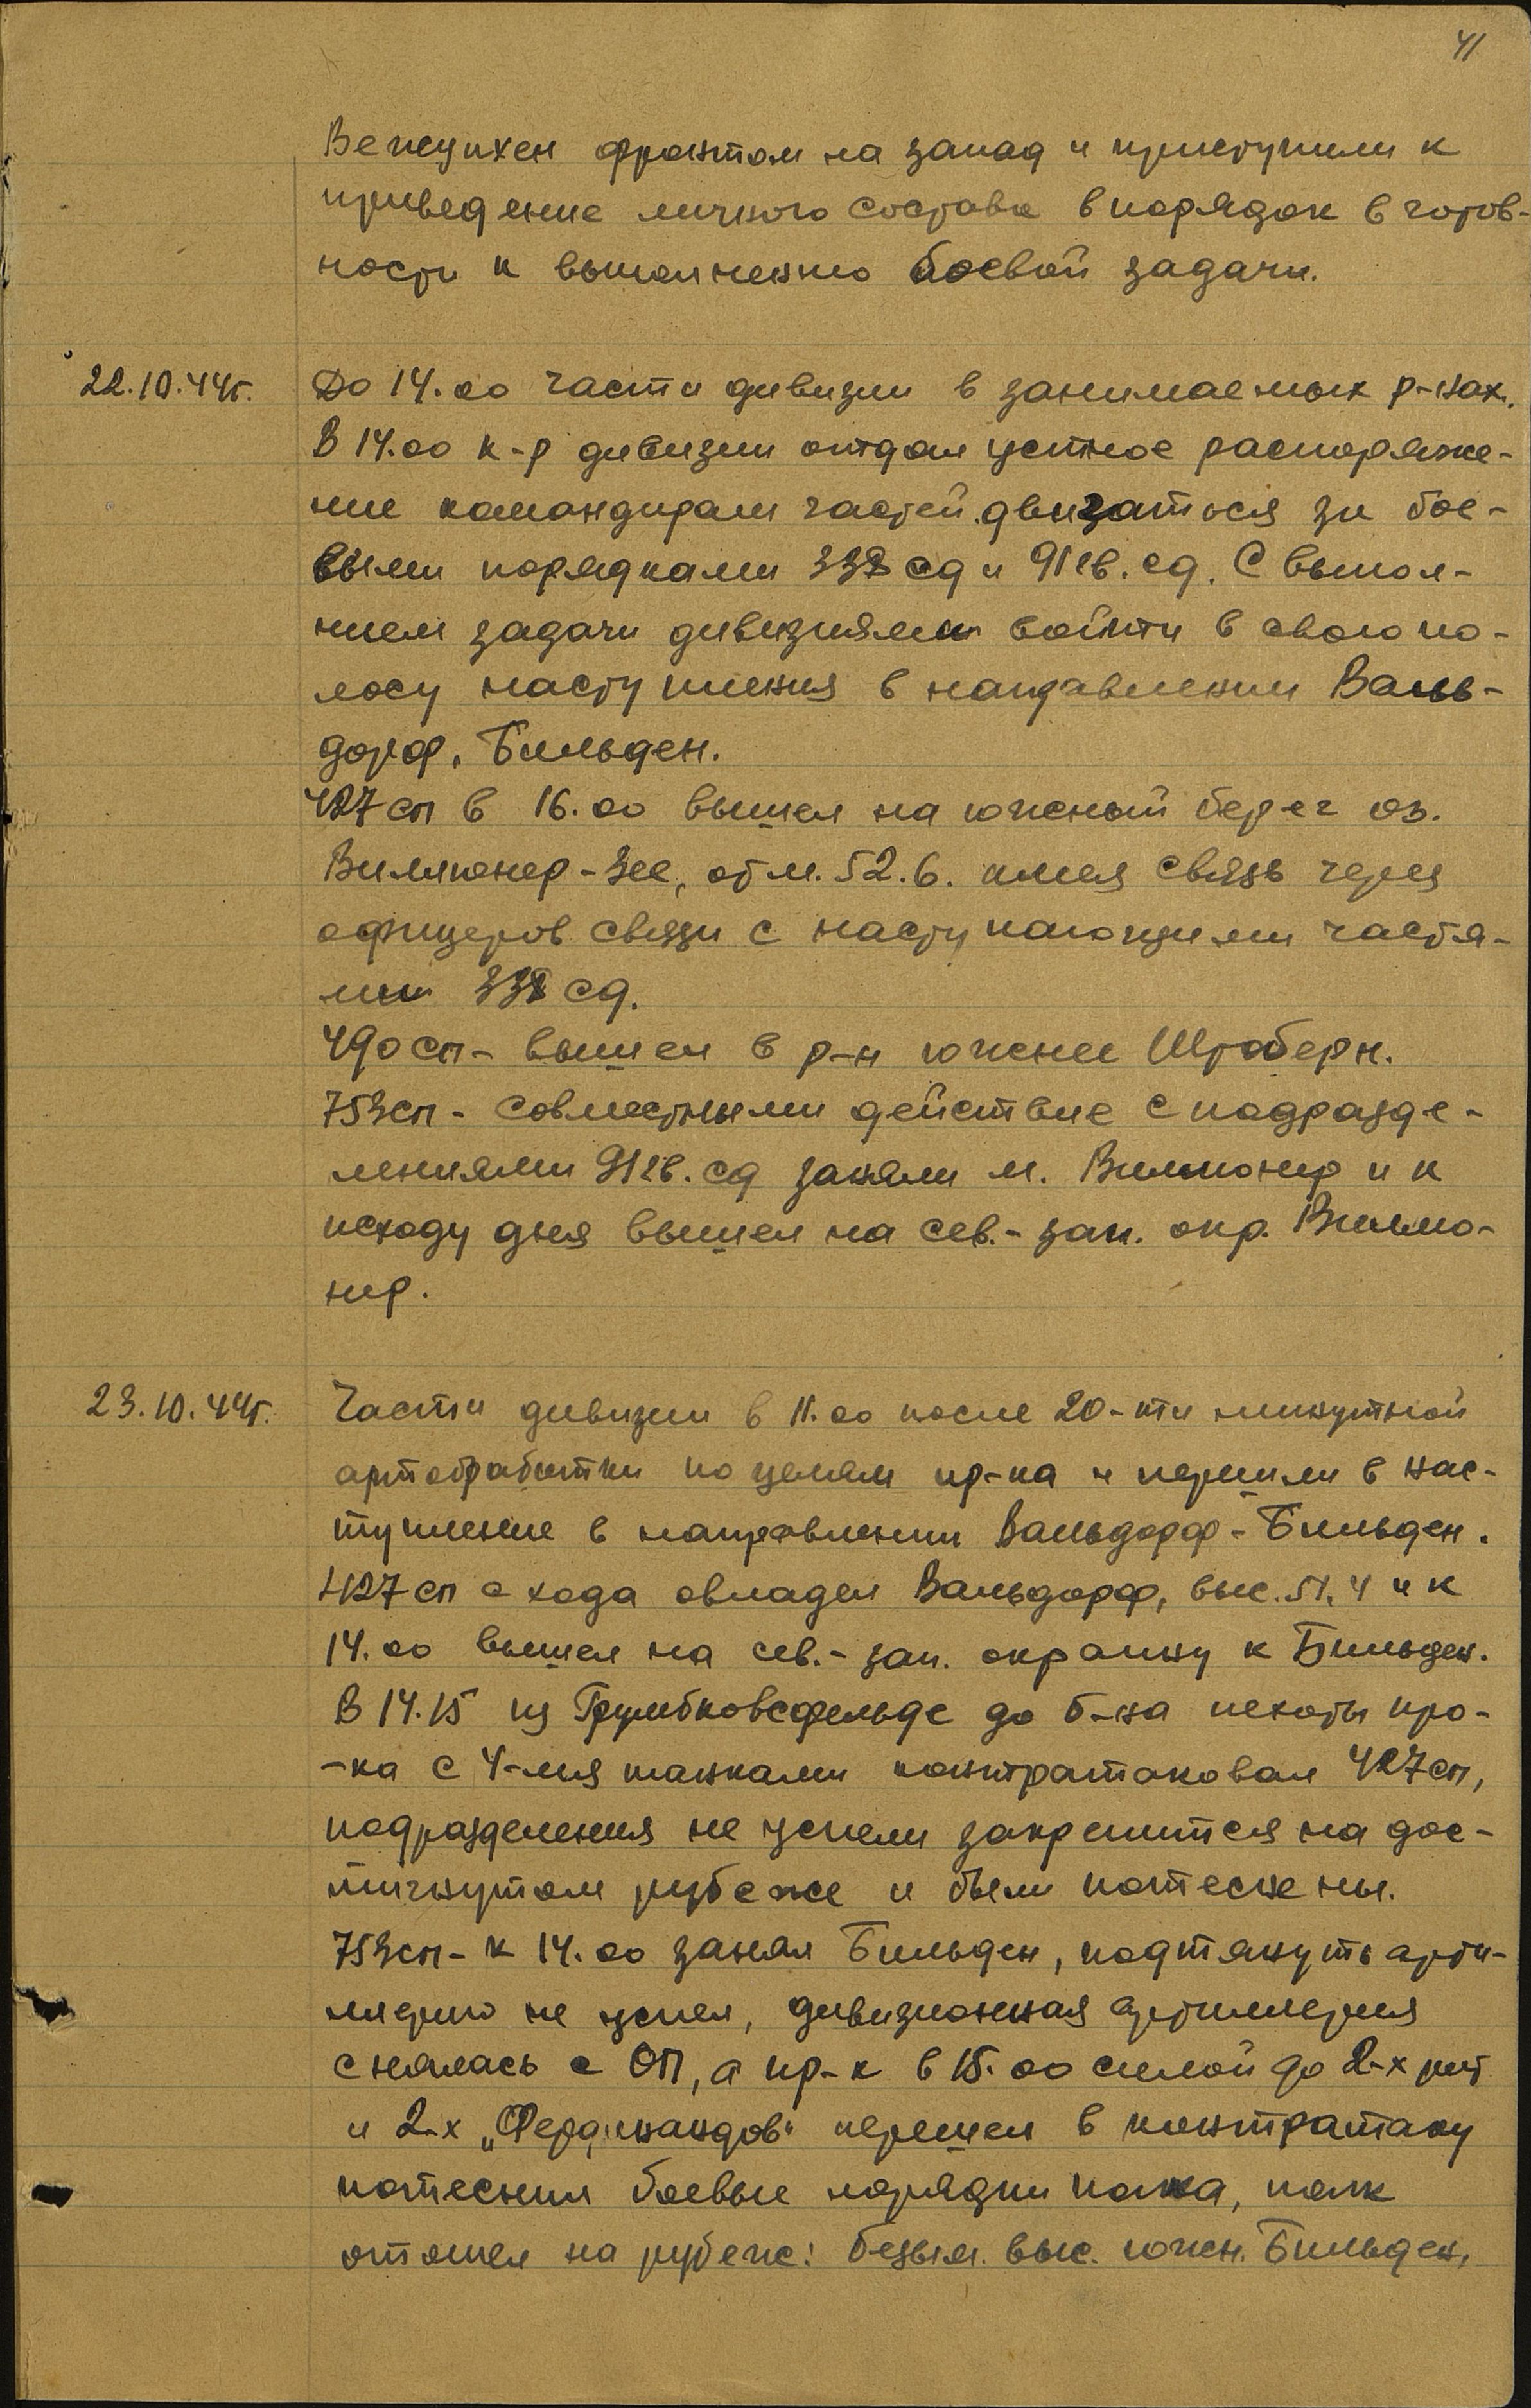 41
Вежупхен фронтом на запад и приступили к
приведение личного состава в порядок в готов-
ности к выполнению боевой задачи.
22.10.44г. До 14.00 части дивизии в занимаемых р-нах.
В 14.00 к-р дивизии отдал устное распоряже-
ние командирам частей двигаться за бое-
выми порядками 338 сд и 91 гв. сд. С выпол-
нием задачи дивизиями войти в свою по-
лосу наступления в направлении Валь-
дорф, Бильден.
427 сп в 16.00 вышел на южный берег оз.
Виллюнер-Зее, отм. 52.6. имея связь через
офицеров связи с наступающими частя-
ми 338 сд.
490 сп - вышел в р-н южнее Штоберн.
753 сп - совместными действие с подразде-
лениями 91 гв. сд заняли м. Вилюнер и к
исходу дня вышел на сев.-зап. окр. Вилю-
нер.
23.10.44г. Части дивизии в 11.00 после 20-ти минутной
артобработки по целям пр-ка и перешли в нас-
тупление в направлении Вальдорф - Бильден.
427 сп с хода овладел Вальдорф, выс. 51,4 и к
14.00 вышел на сев.-зап. окраину к Бильден.
В 14.15 из Грумбковсфельде до б-на пехоты про-
-ка с 4-мя танками контратаковал 427 сп,
подразделения не успели закрепится на дос-
тигнутом рубеже и были потеснены.
753 сп - к 14.00 занял Бильден, подтянуть арти-
лерию не успел, дивизионная артиллерия
снялась с ОП, а пр-к в 15.00 силой до 2-х рот
и 2-х „Фердинандов" перешел в контратаку
потеснил боевые порядки полка, полк
отошел на рубеж: безым. выс. южн. Бильден,